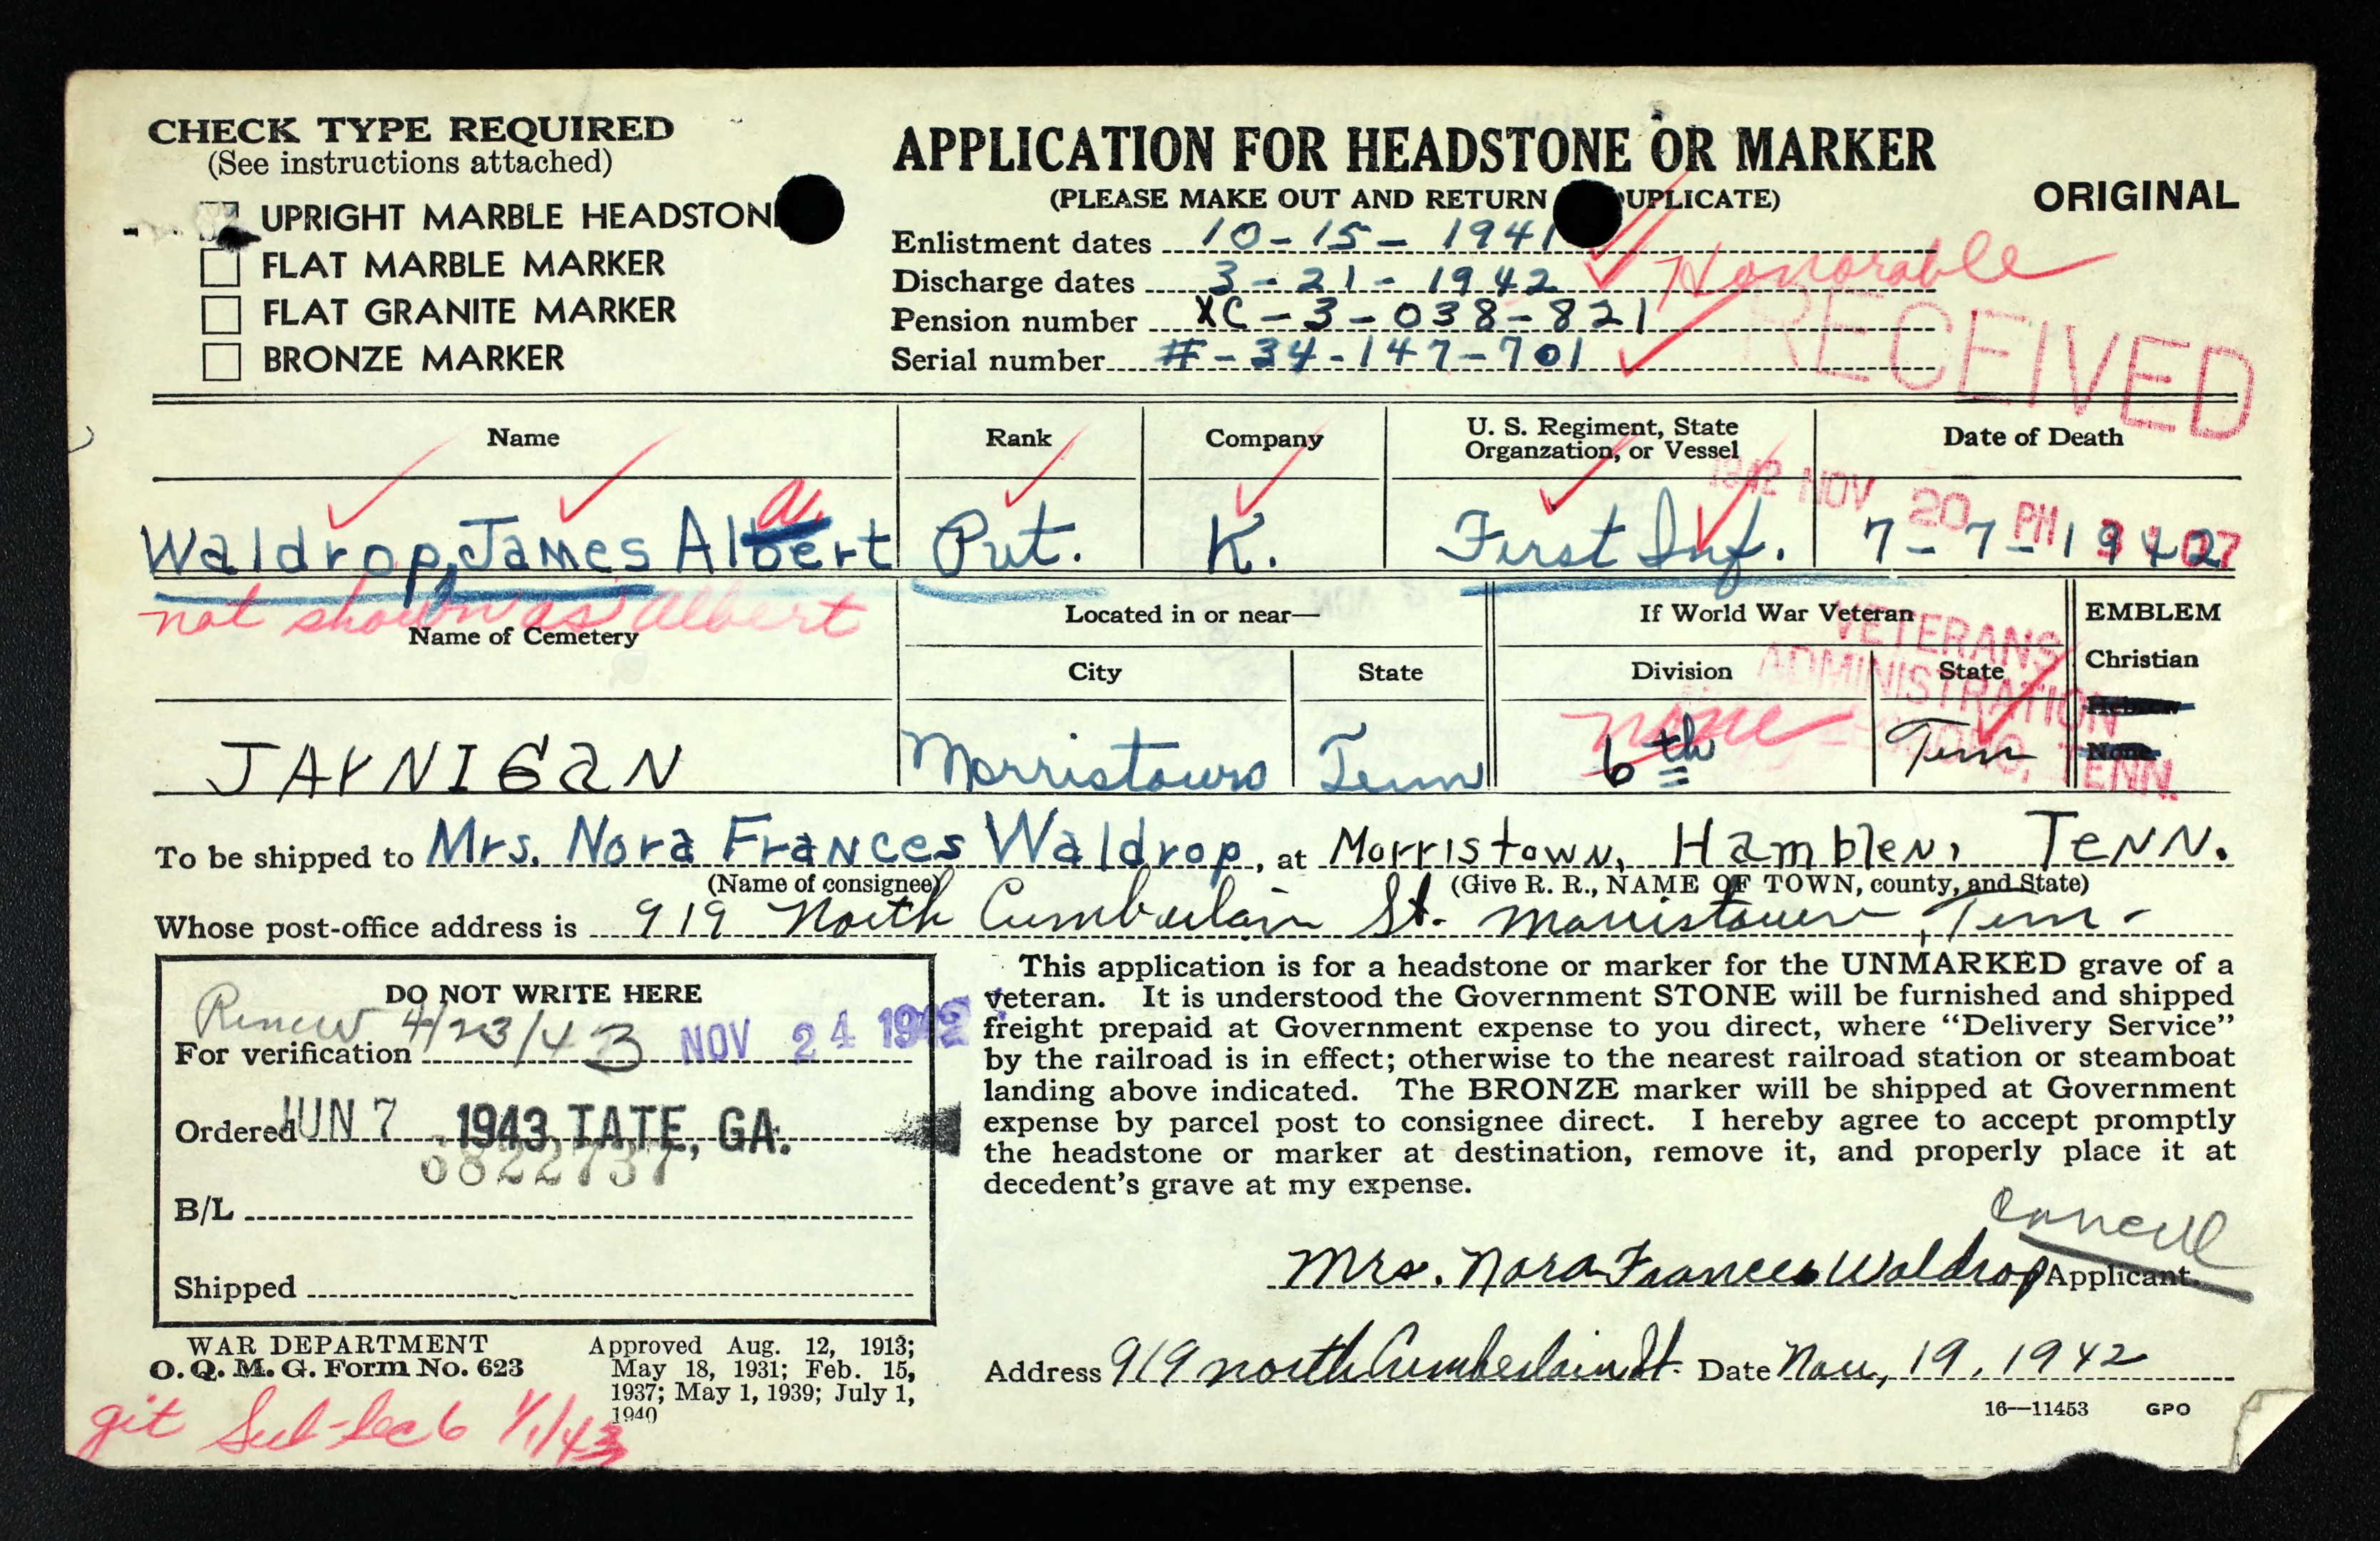 CHECK TYPE REQUIRED
(See instructions attached)
UPRIGHT MARBLE HEADSTON
FLAT MARBLE MARKER
FLAT GRANITE MARKER
BRONZE MARKER
APPLICATION FOR HEADSTONE OR MARKER
(PLEASE MAKE OUT AND RETURN UPLICATE)
ORIGINAL
Enlistment dates 10-15-1941
Discharge dates 3-21-1942 Honorable
Pension number XC-3-038-821
Serial number #-34-147-701
RECEIVED
1942 NOV 20 PM 3 07
VETERANS
ADMINISTRATION
TENN.
Name Rank Company U. S. Regiment, State Organzation, or Vessel Date of Death
a.
Waldrop, James Albert Pvt. K. First Inf. 7-7-1942
not shown as Albert
Name of Cemetery Located in or near— If World War Veteran EMBLEM
City State Division State Christian
Hebrew
none
None
JAYNIGAN Morristown Tenn 6th Tenn
To be shipped to Mrs. Nora Frances Waldrop, at Morristown, Hamblen, TENN.
(Name of consignee) (Give R. R., NAME OF TOWN, county, and State)
Whose post-office address is 919 North Cumberlain St. Morristown, Tenn-
DO NOT WRITE HERE
Renew 4/23/43
For verification NOV 24 1942
Ordered JUN 7 1943 TATE, GA.
6822737
B/L
Shipped
This application is for a headstone or marker for the UNMARKED grave of a
veteran. It is understood the Government STONE will be furnished and shipped
freight prepaid at Government expense to you direct, where “Delivery Service”
by the railroad is in effect; otherwise to the nearest railroad station or steamboat
landing above indicated. The BRONZE marker will be shipped at Government
expense by parcel post to consignee direct. I hereby agree to accept promptly
the headstone or marker at destination, remove it, and properly place it at
decedent’s grave at my expense.
Mrs. Nora Frances Waldrop Applicant.
Address 919 north Cumberlain St. Date Nov, 19, 1942
WAR DEPARTMENT
O. Q. M. G. Form No. 623
Approved Aug. 12, 1913;
May 18, 1931; Feb. 15,
1937; May 1, 1939; July 1,
1940
16—11453 GPO
1/1/43